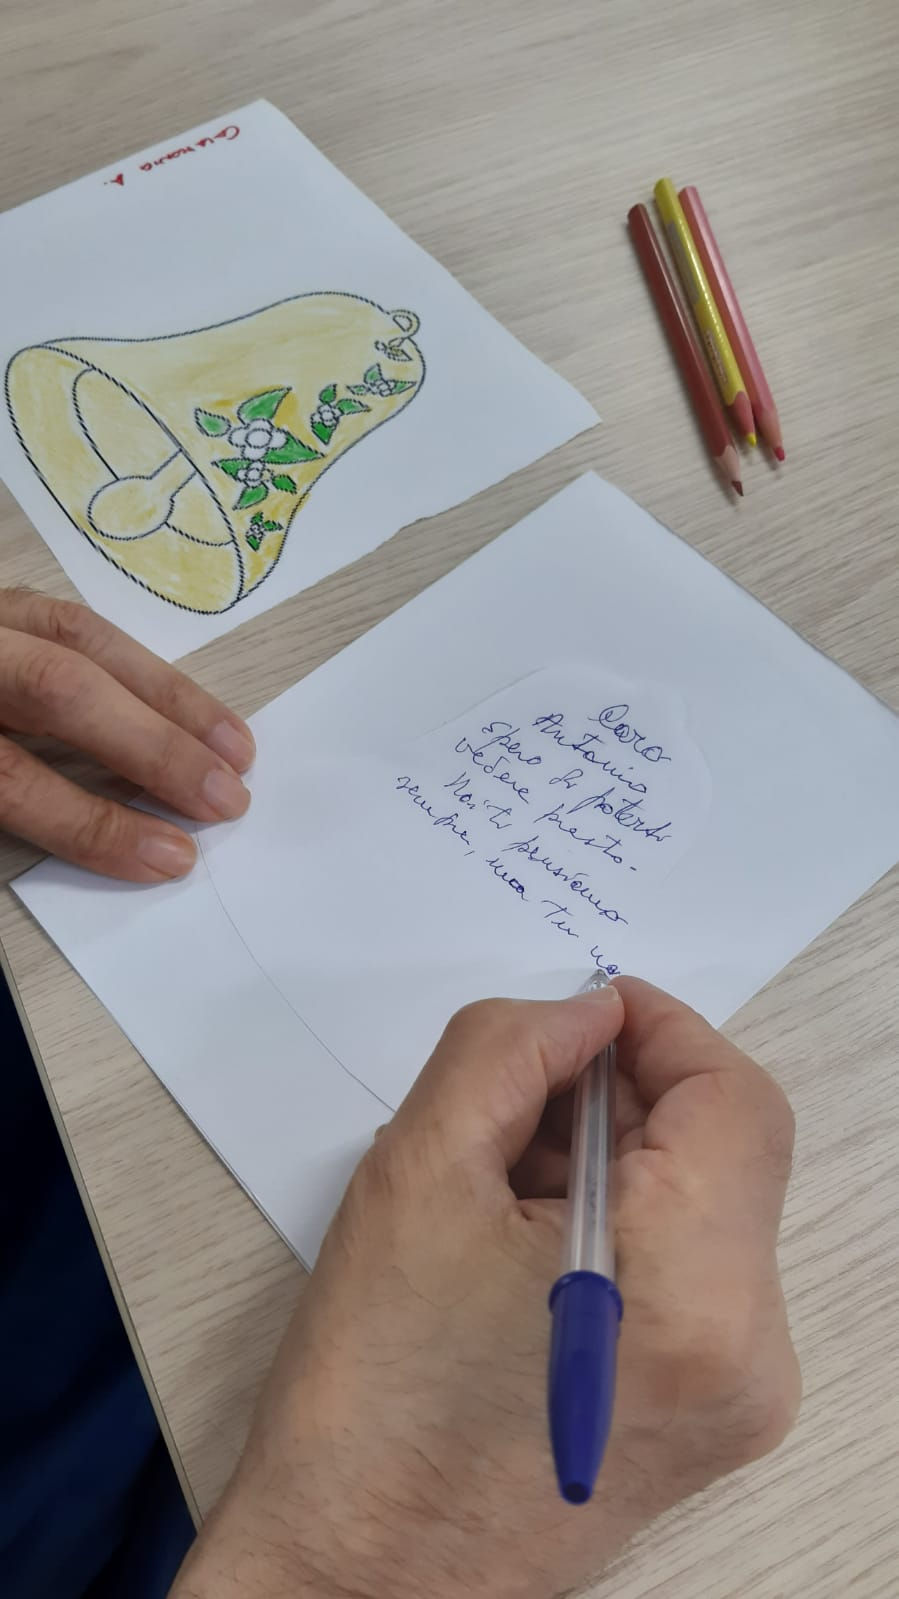 Caro
Antonio
spero di poterti
vedere presto.
Noi ti pensiamo
sempre, ma tu no
A.